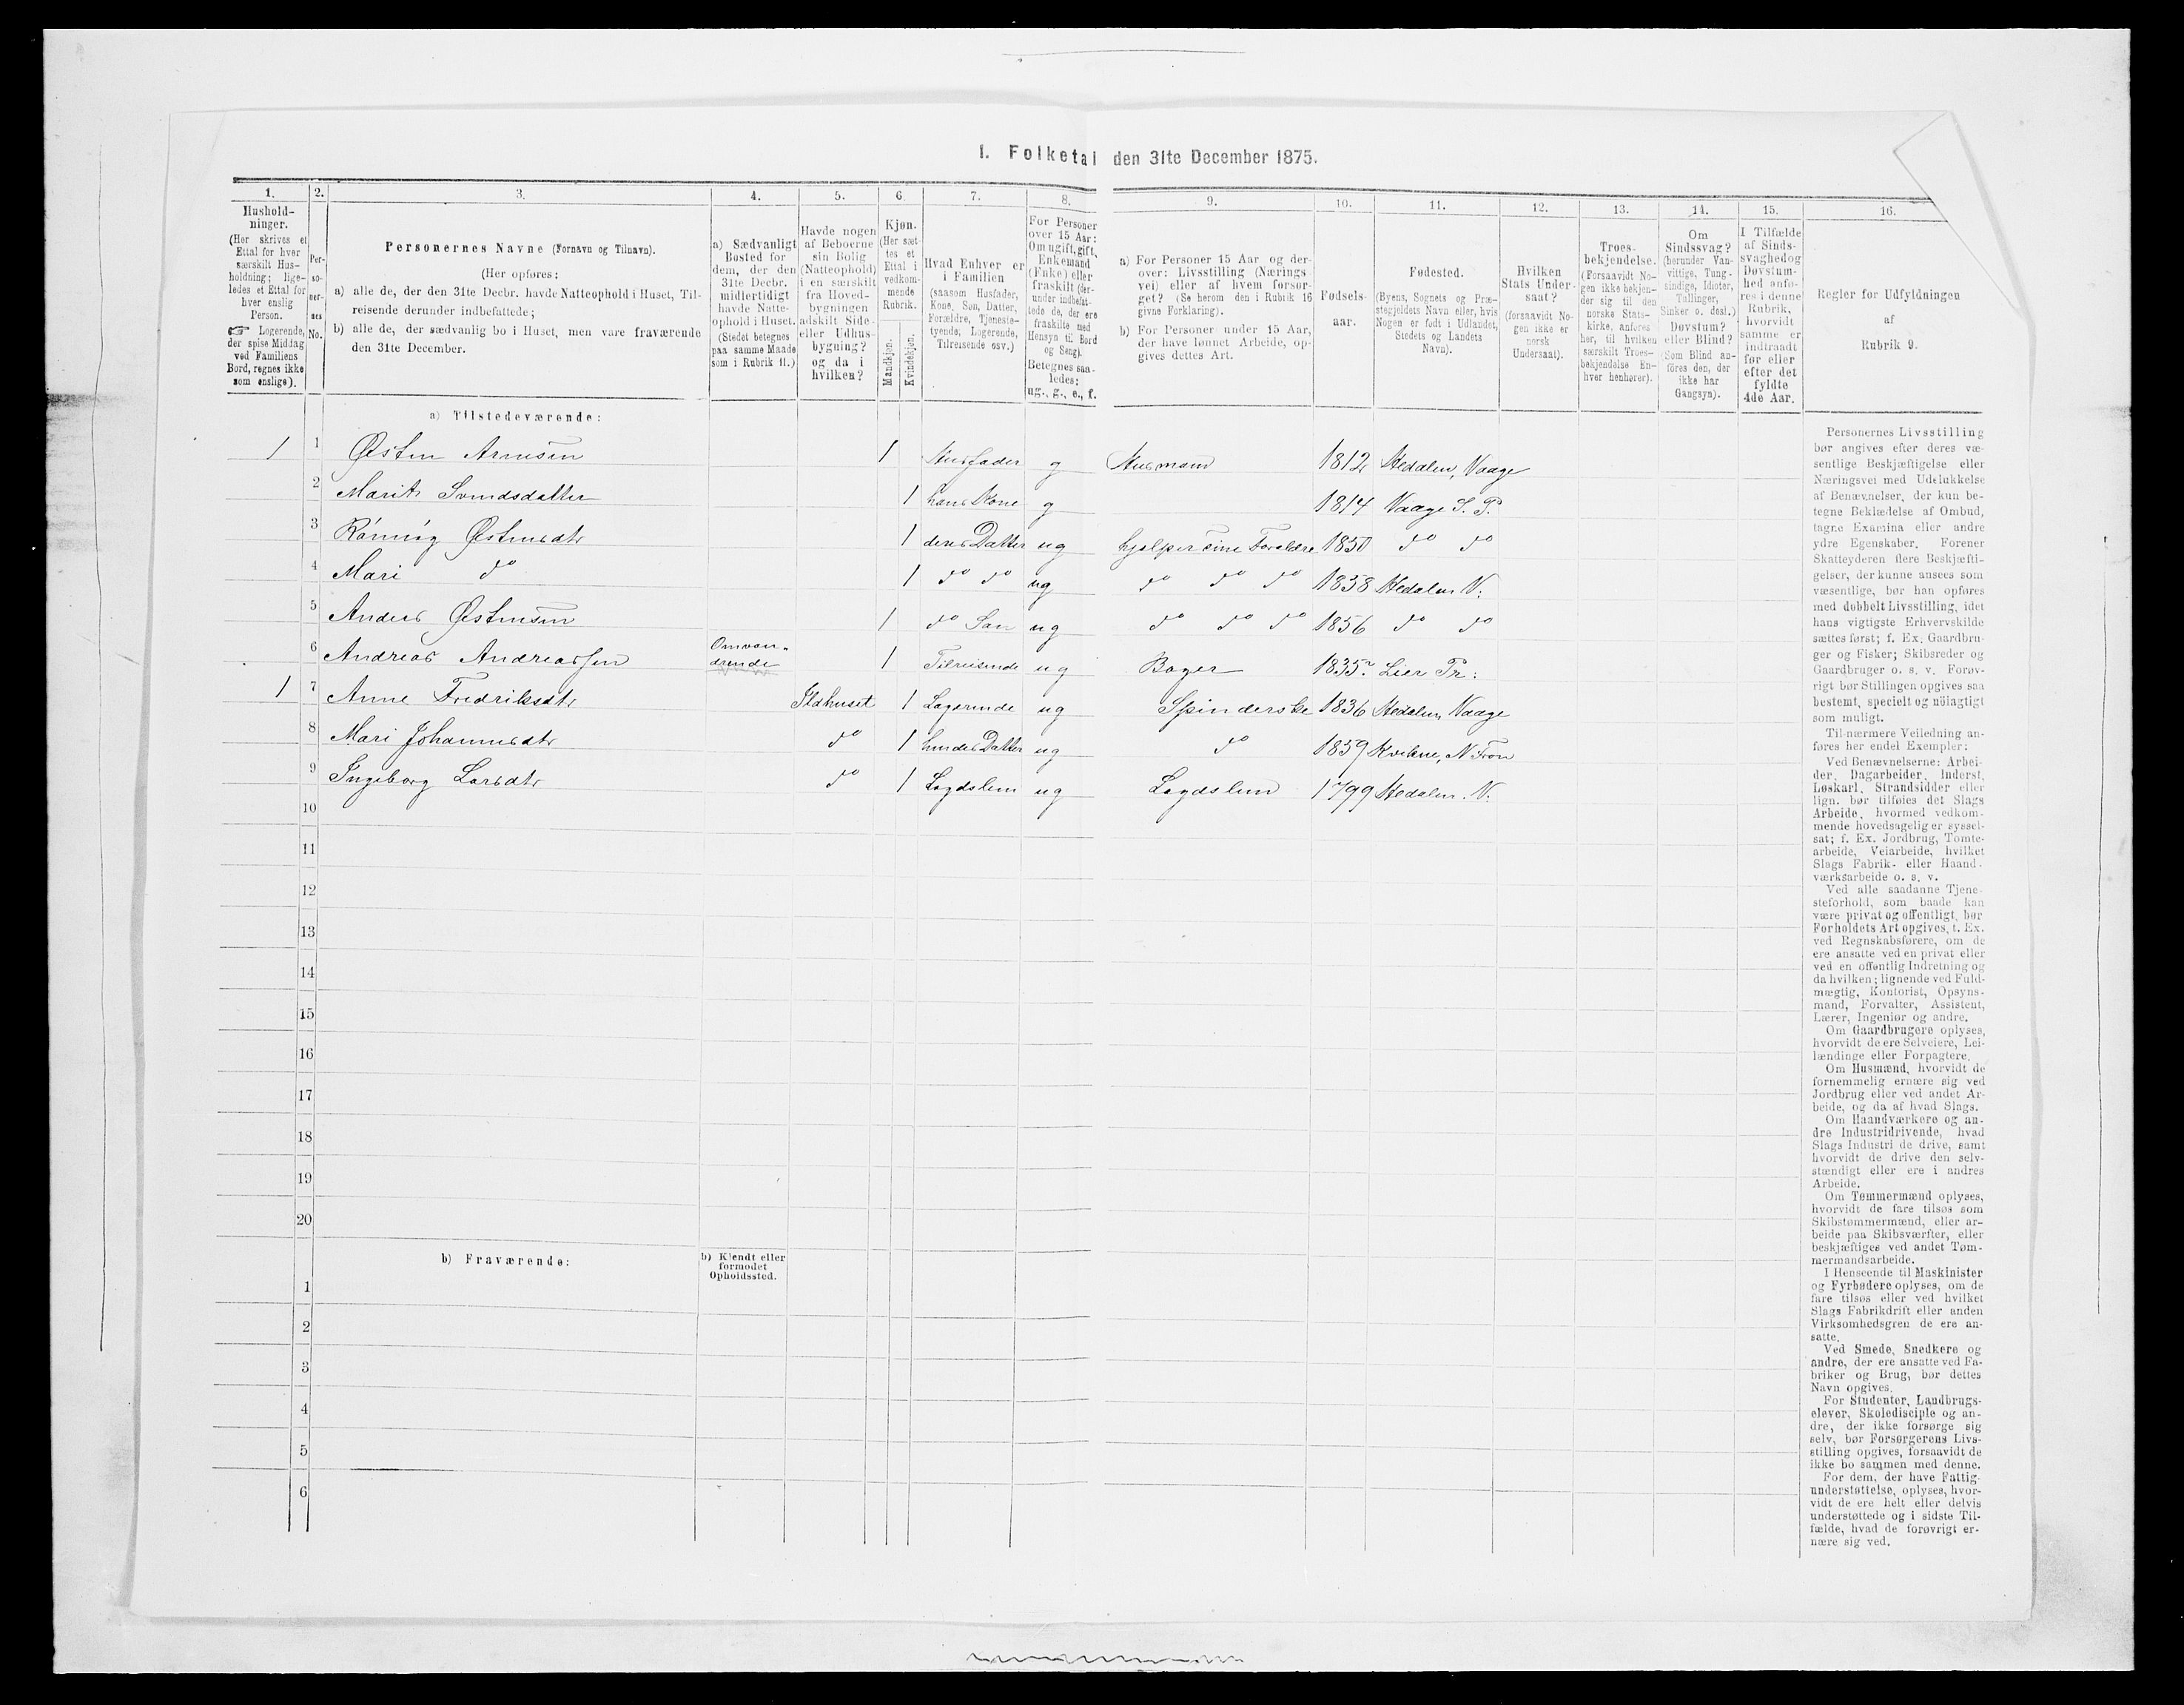 I. Folketal den 31te December 1875.
1. 2. 3. 4. 5. 6. 7. 8. 9. 10. 11. 12. 13. 14. 15. 16.
Hushold-
ninger.
(Her skrives et
Ettal for hver
særskilt Hus-
holdning; lige-
ledes et Ettal for
hver enslig
Person.
☞ Logerende,
der spise Middag
ved Familiens
Bord, regnes ikke
som enslige).
Per-
so-
ner-
nes
No.
Personernes Navne (Fornavn og Tilnavn).
(Her opføres;
a) alle de, der den 31te Decbr. havde Natteophold i Huset, Til-
reisende derunder indbefattede;
b) alle de, der sædvanlig bo i Huset, men vare fraværende
den 31te December.
a) Sædvanligt
Bosted for
dem, der den
31te Decbr.
midlertidigt
havde Natte-
ophold i Huset.
(Stedet betegnes
paa samme Maade
som i Rubrik 11.)
Havde nogen
af Beboerne
sin Bolig
(Natteophold)
i en særskilt
fra Hoved-
bygningen
adskilt Side-
eller Udhus-
bygning?
og da i
hvilken?
Kjøn.
(Her sæt-
tes et
Ettal i
vedkom-
mende
Rubrik.
Mandkjøn.
Kvindekjøn.
Hvad Enhver er
i Familien
(saasom Husfader,
Kone, Søn, Datter,
Forældre, Tjeneste-
tyende; Logerende,
Tilreisende osv.)
For Personer
over 15 Aar:
Om ugift, gift,
Enkemand
(Enke) eller
fraskilt (der-
under indbefat-
tede de, der ere
fraskilte med
Hensyn til Bord
og Seng).
Betegnes saa-
ledes:
ug., g., e., f.
a) For Personer 15 Aar og der-
over: Livsstilling (Nærings
vei) eller af hvem forsør-
get? (Se herom den i Rubrik 16
givne Forklaring).
b) For Personer under 15 Aar,
der have lønnet Arbeide, op-
gives dettes Art.
Fødsels-
aar.
Fødested.
(Byens, Sognets og Præ-
stegjeldets Navn eller, hvis
Nogen er født i Udlandet,
Stedets og Landets
Navn).
Hvilken
Stats Under-
saat?
(forsaavidt No-
gen ikke er
norsk
Undersaat).
Troes-
bekjendelse.
(Forsaavidt No-
gen ikke bekjen-
der sig til den
norske Stats-
kirke, anføres
her, til hvilken
særskilt Troes-
bekjendelse En-
hver henhører).
Om
Sindssvag?
(herunder Van-
vittige, Tung-
sindige, Idioter,
Tullinger,
Sinker o. desl.)
Døvstum?
eller Blind?
(Som Blind an-
føres den, der
ikke har
Gangsyn).
I Tilfælde
af Sinds-
svaghed og
Døvstum-
hed anfø-
res i denne
Rubrik,
hvorvidt
samme er
indtraadt
før eller
efter det
fyldte
4de Aar.
Regler for Udfyldningen
af
Rubrik 9.
a) Tilstedeværende:
1 1 Østen Arnesen 1 Husfader g Husmand 1812 Hedalen, Vaage
2 Marit Svendsdatter 1 hans Kone g 1814 Vaage S. P.
3 Rønnøg Østensdtr 1 deres Datter ug hjelper sine Forældre 1850 do do
4 Mari do 1 do do ug do do do 1858 Hedalen V.
5 Anders Østensen 1 do Søn ug do do do 1856 do do
6 Andreas Andreassen Omvan-
drende 1 Tilreisende ug Bager 1835 Lier Pr:
1 7 Anne Fredriksdtr Ildhuset 1 Logerende ug Spinderske 1836 Hedalen, Vaage
8 Mari Johannesdtr do 1 hendes Datter ug do 1859 Kvikne, N Fron
9 Ingeborg Larsdtr do 1 Lægdslem ug Lægdslem 1799 Hedalen. V.
10
11
12
13
14
15
16
17
18
19
20
b) Fraværende:
b) Kjendt eller
formodet
Opholdssted.
1
2
3
4
5
6
Personernes Livsstilling
bør angives efter deres væ-
sentlige Beskjæftigelse eller
Næringsvei med Udelukkelse
af Benævnelser, der kun be-
tegne Beklædelse af Ombud,
tagne Examina eller andre
ydre Egenskaber. Forener
Skatteyderen flere Beskjæfti-
gelser, der kunne ansees som
væsentlige, bør han opføres
med dobbelt Livsstilling, idet
hans vigtigste Erhvervskilde
sættes først; f. Ex. Gaardbru-
ger og Fisker; Skibsreder og
Gaardbruger o. s. v. Forøv-
rigt bør Stillingen opgives saa
bestemt, specielt og nöiagtigt
som muligt.
Til nærmere Veiledning an-
føres her endel Exempler:
Ved Benævnelserne: Arbei-
der, Dagarbeider, Inderst,
Løskarl, Strandsidder eller
lign. bør tilføies det Slags
Arbeide, hvormed vedkom-
mende hovedsagelig er syssel-
sat; f. Ex. Jordbrug, Tømte-
arbeide, Veiarbeide, hvilket
Slags Fabrik- eller Haand-
værksarbeide o. s. v.
Ved alle saadanne Tjene-
steforhold, som baade kan
være privat og offentligt, bør
Forholdets Art opgives, t. Ex.
ved Regnskabsførere, om de
ere ansatte ved en privat eller
ved en offentlig Indretning og
da hvilken; lignende ved Fuld-
mægtig, Kontorist, Opsyns-
mand, Forvalter, Assistent,
Lærer, Ingeniør og andre.
Om Gaardbrugere oplyses,
hvorvidt de ere Selveiere, Lei-
lændinge eller Forpagtere.
Om Husmænd, hvorvidt de
fornemmelig ernære sig ved
Jordbrug eller ved andet Ar-
beide, og da af hvad Slags.
Om Haandværkere og an-
dre Industridrivende, hvad
Slags Industri de drive, samt
hvorvidt de drive den selv-
stændigt eller ere i andres
Arbeide.
Om Tømmermænd oplyses,
hvorvidt de fare tilsøs som
Skibstømmermænd, eller ar-
beide paa Skibsværfter, eller
beskjæftiges ved andet Tøm-
mermandsarbeide.
I Henseende til Maskinister
og Fyrbødere oplyses, om de
fare tilsøs eller ved hvilket
Slags Fabrikdrift eller anden
Virksomhedsgren de ere an-
satte.
Ved Smede, Snedkere og
andre, der ere ansatte ved Fa-
briker og Brug, bør dettes
Navn opgives.
For Studenter, Landbrugs-
elever, Skoledisciple og an-
dre, der ikke forsørge sig
selv, bør Forsørgerens Livs-
stilling opgives, forsaavidt de
ikke bo sammen med denne.
For dem, der have Fattig-
understøttelse, oplyses, hvor-
vidt de ere helt eller delvis
understøttede og i sidste Til-
fælde, hvad de forøvrigt er-
nære sig ved.